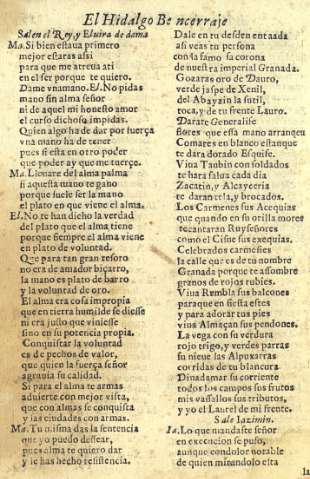 El Hidalgo Bencerraje
Salen el Rey, y Eluira de dama
Ma. Si bien estaua primero
mejor estaras assi
para que me atreua ati
en el ser porque te quiero.
Dame vna mano. El. No pidas
mano sin alma señor
ni de aquel mi honesto amor
el curso dichoso impidas.
Quien algo ha de dar por fuerça
vna mano ha de tener
pues si esta en otro poder
que poder ay que me tuerça.
Ma. Lleuare del alma palma
si aquesta mano te gano
porque suele ser la mano
el plato en que viene el alma.
El. No te han dicho la verdad
del plato que el alma tiene
porque siempre el alma viene
en plato de voluntad.
Que para tan gran tesoro
no era de amador biçarro,
la mano es plato de barro
y la voluntad de oro.
El alma era cosa impropia
que en tierra humilde se diesse
ni era justo que viniesse
sino en su potencia propia.
Conquistar la voluntad
es de pechos de valor,
que quien la fuerça señor
agrauia su calidad.
Si para el alma te armas
aduierte con mejor vista,
que con almas se conquista
y las ciudades con armas.
Ma. Tu misma das la sentencia
que yo puedo dessear,
pues alma te quiero dar
y le has hecho resistencia.
Dale en tu desden entrada
asi veas tu persona
con la famosa corona
de nuestra imperial Granada.
Gozaras oro de Dauro,
verde jaspe de Xenil,
del Abayzin la sutil,
toca, y de tu frente Lauro.
Darate Generalife
flores que essa mano arranquen
Comares en blanco estanque
te dara dorado Esquife.
Viua Taubin con soldados
te hara salua cada dia
Zacatin, y Alcayceria
te daran tela, y brocados.
Los Carmenes sus Acequias
que quando en su orilla mores
te cantaran Ruyseñores
como el Cisne sus exequias.
Celebrados carmesies
la calle que es de tu nombre
Granada porque te assombre
granos de rojos rubies.
Viua Rembla sus balcones
para que en fiesta estes
y para adorar tus pies
viua Almaçan sus pendones.
La vega con su verdura
rojo trigo, y verdes parras
su nieue las Alpuxarras
corridas de tu blancura
Dinadamar su corriente
todos los campos sus frutos
mis vasallos sus tributos,
y yo el Laurel de mi frente.
Sale Iazimin.
Ia. Lo que mandaste señor
en execucion se puso,
aunque con dolor notable
de quien mirandolo esta
la